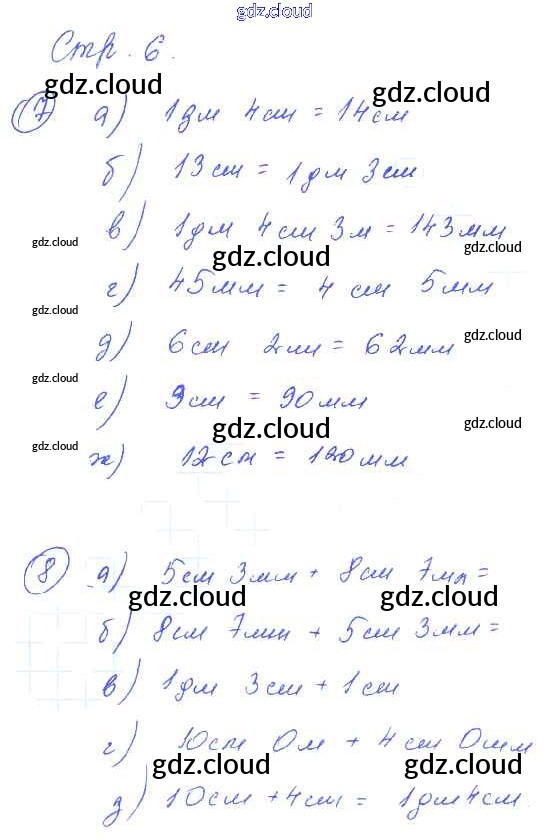 gdz.cloud
Стр. 6.
gdz.cloud gdz.cloud
7 а) 1дм 4см = 14см
б) 13см = 1дм 3см
в) 1дм 4см 3м = 143мм
gdz.cloud gdz.cloud gdz.cloud
г) 45мм = 4 см 5мм
gdz.cloud gdz.cloud
д) 6см 2мм = 62мм
gdz.cloud
е) 9см = 90мм
gdz.cloud gdz.cloud
ж) 12см = 120мм
8 а) 5см 3мм + 8см 7мм =
gdz.cloud gdz.cloud
б) 8см 7мм + 5см 3мм =
в) 1дм 3см + 1см
г) 10см 0м + 4см 0мм
gdz.cloud gdz.cloud
д) 10см + 4см = 1дм 4см.